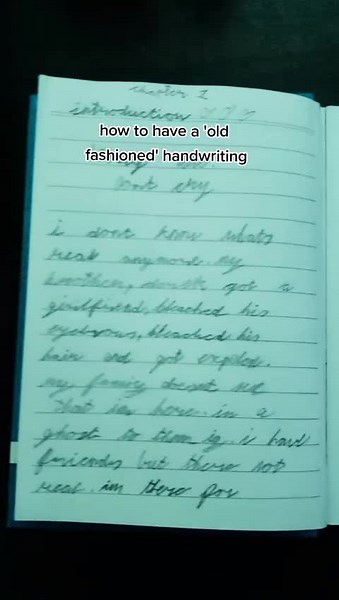 chapter 1
introduction
how to have a 'old
fashioned' handwriting
dont cry
i dont know whats
real anymore. my
brother, got a
girlfriend, bleached his
eyebrows, bleached his
hair and got
my family doesnt see
that im here. im a
ghost to them ig. i have
friends but there not
real. im there for